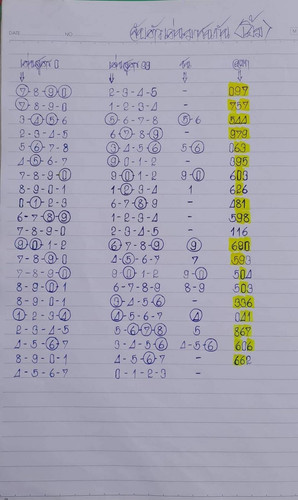 7-8-9-0 2-3-4-5 - 097
7-8-9-0 1-2-3-4 - 757
3-4-5-6 5-6-7-8 5-6 544
2-3-4-5 6-7-8-9 - 979
5-6-7-8 3-4-5-6 5-6 063
4-5-6-7 9-0-1-2 - 395
7-8-9-0 9-0-1-2 9-0 603
8-9-0-1 1-2-3-4 1 626
0-1-2-3 6-7-8-9 - 481
6-7-8-9 1-2-3-4 - 598
7-8-9-0 2-3-4-5 - 116
9-0-1-2 6-7-8-9 9 690
7-8-9-0 4-5-6-7 7 593
7-8-9-0 9-0-1-2 9-0 504
8-9-0-1 6-7-8-9 8-9 503
8-9-0-1 3-4-5-6 - 936
1-2-3-4 4-5-6-7 4 041
2-3-4-5 5-6-7-8 5 867
4-5-6-7 3-4-5-6 4-5-6 606
8-9-0-1 4-5-6-7 - 662
4-5-6-7 0-1-2-3 -